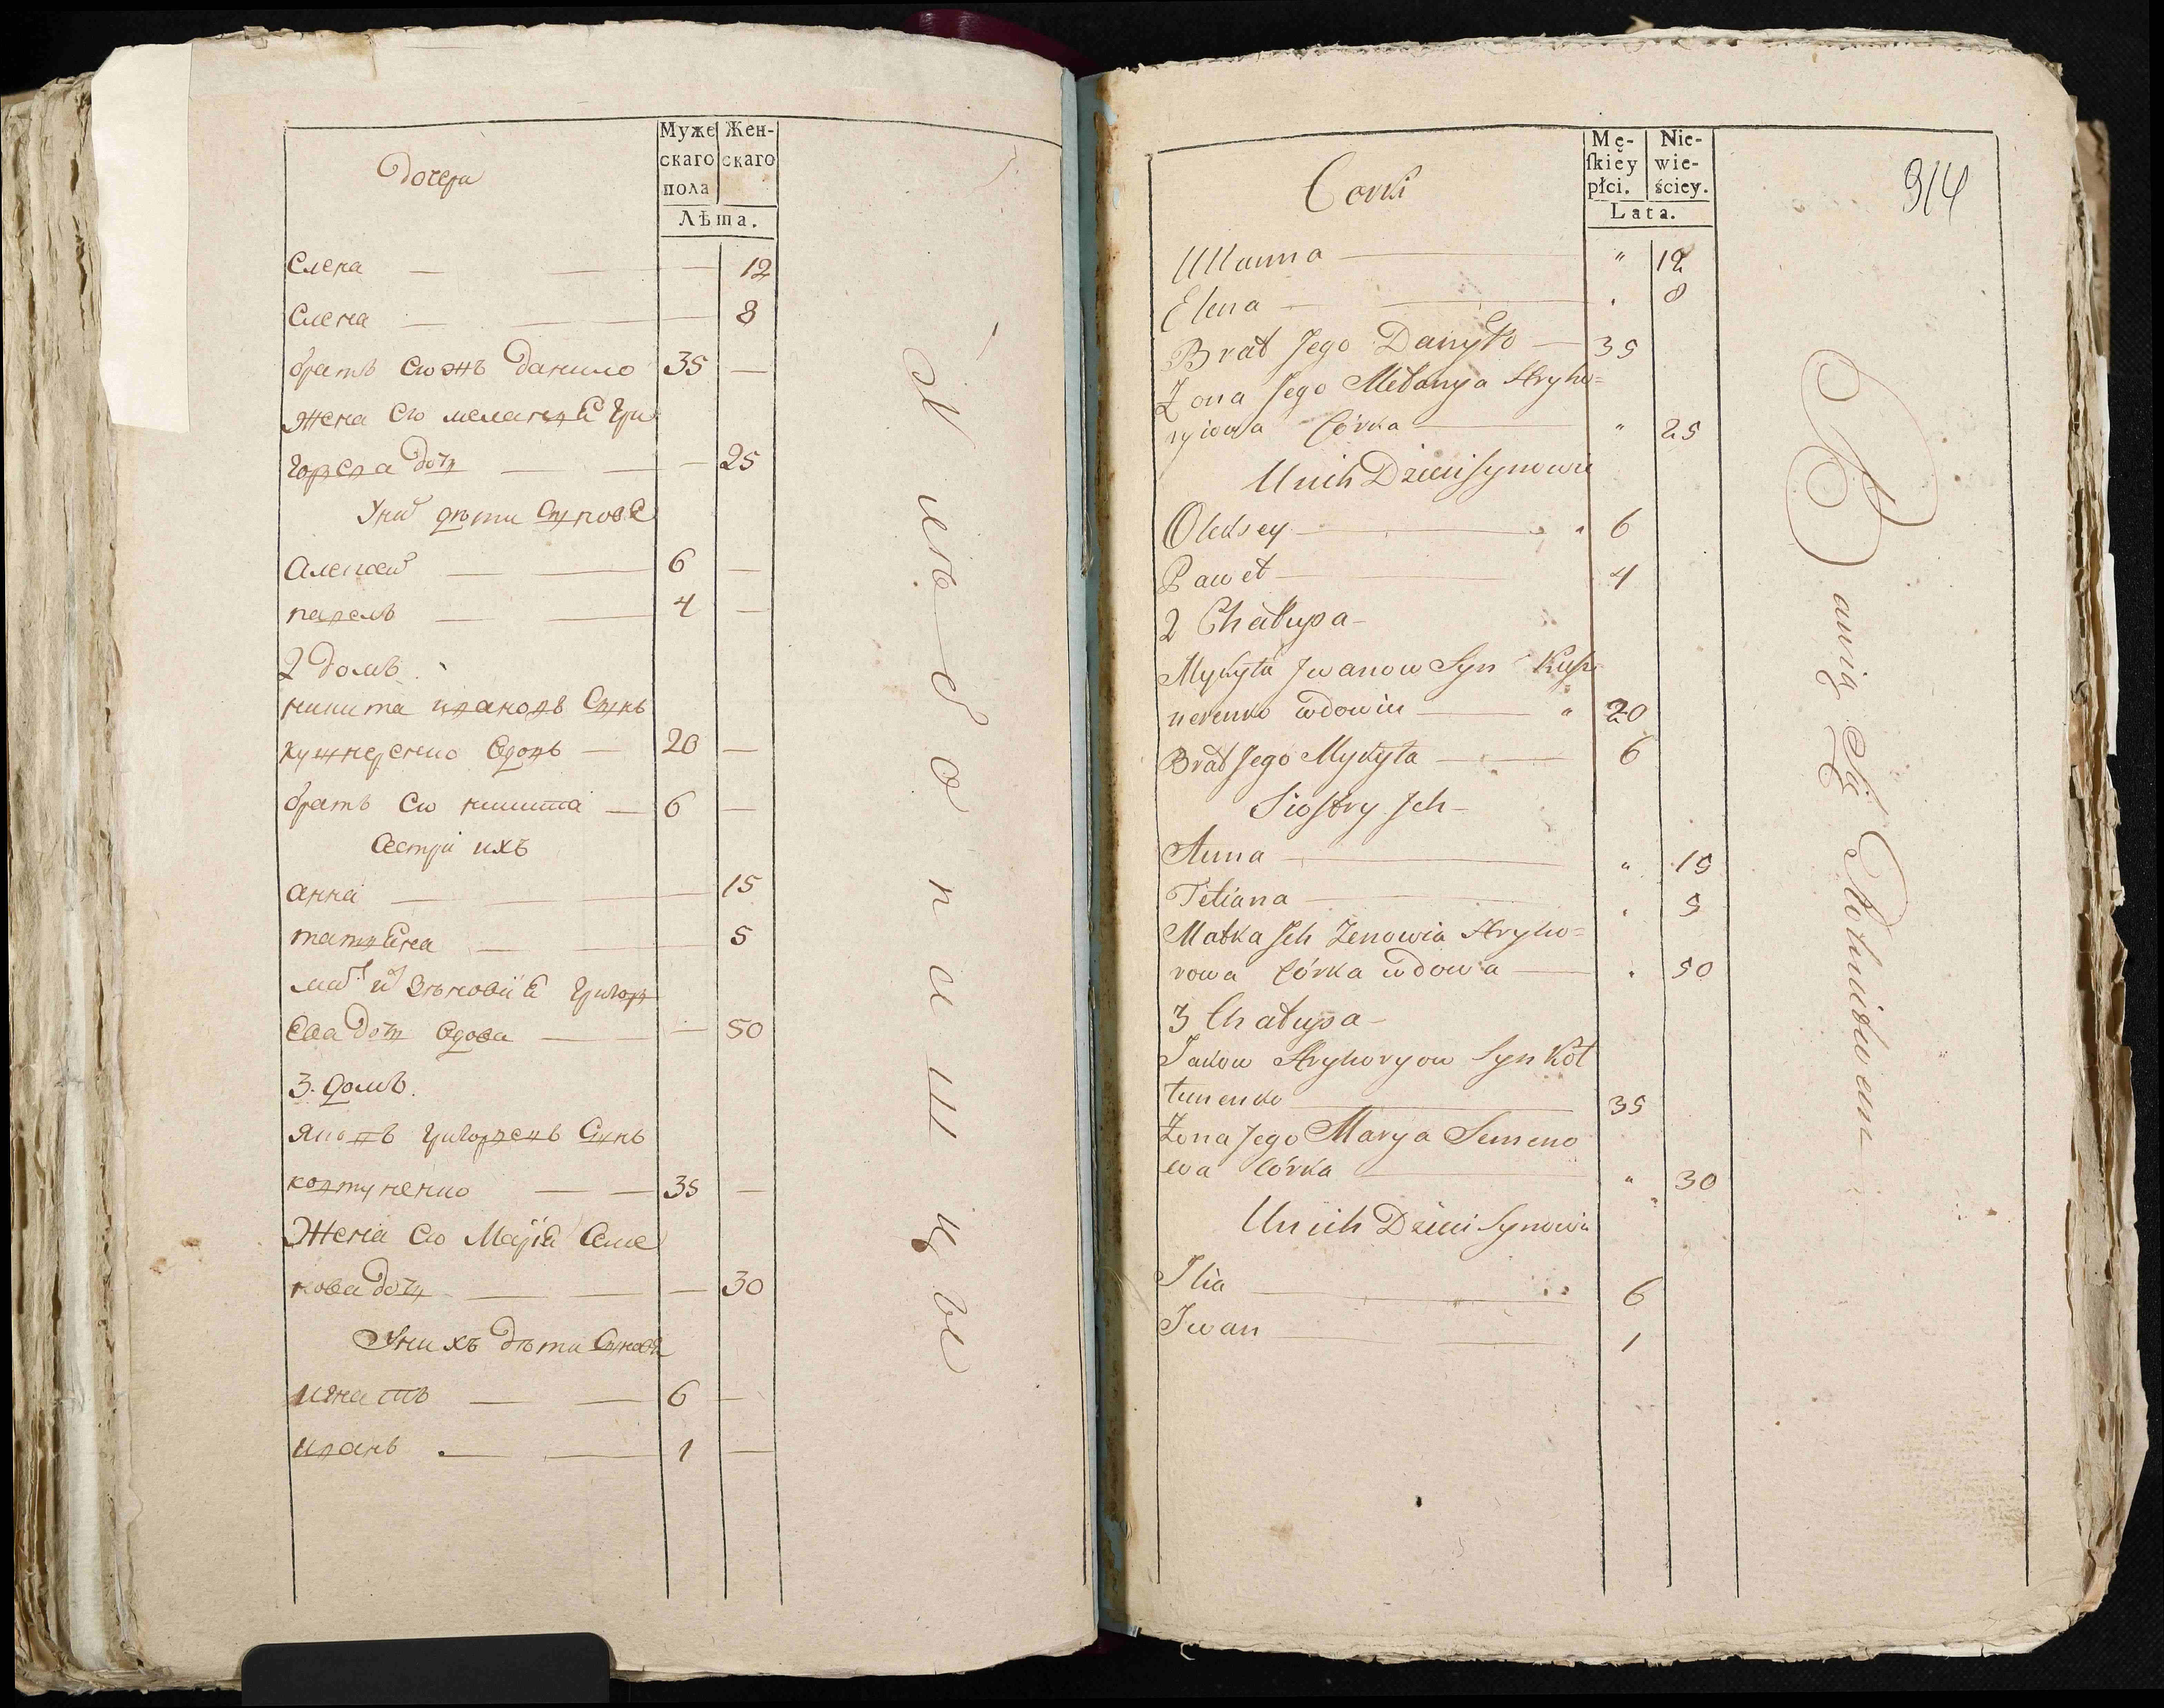 Дочери
Мужескаго пола
Женскаго
Лѣта.
Елена — — — 12
Елена — — — 8
братъ Его жъ Данило 35 —
жена Его мелания Гри
горева дочь — — — 25
Уних дѣти Синове
Алексей — — 6 —
павелъ — — 4 —
2 домъ.
никита ивановъ Синъ
кушнеренко вдовъ — 20 —
братъ Его никита — 6 —
Сестри ихъ
анна — — — 15
татияна — — 5
мат их Зѣновия Григор
Ева дочь вдова — — 50
3. домъ.
яковъ григориевъ Синъ
ковтуненко — — 35 —
Жена Его Мария Семе
нова дочь — — — 30
Унихъ дѣти Синове
игнатъ — — 6 —
иванъ — — 1 —
Хлѣбопашцы
Corki
Mę-skiey płci.
Nie-wieściey.
Lata.
914
Ulianna — " 12
Elena — . 8
Brat Jego Danyło — 35
Żona Jego Mełanya Hryho=
ryiowa Córka — " 25
Unich Dzieci Synowie
Oleksey — " 6
Paweł — 4
2 Chałupa —
Mykyta Jwanow Syn Kusz=
nerenko wdowiec — " 20
Brat Jego Mykyta — 6
Siostry Jch —
Anna — " 15
Tetiana — . 5
Matka Jch Zenowia Hryho=
rowa Córka wdowa — . 50
3 Chałupa —
Jakow Hryhoryow Syn Koł
tunenko — 35
Żona Jego Marya Semeno
wa Córka — " 30
Unich Dzieci Synowie
Jlia — 6
Jwan — 1
Bawią Się Rolnictwem